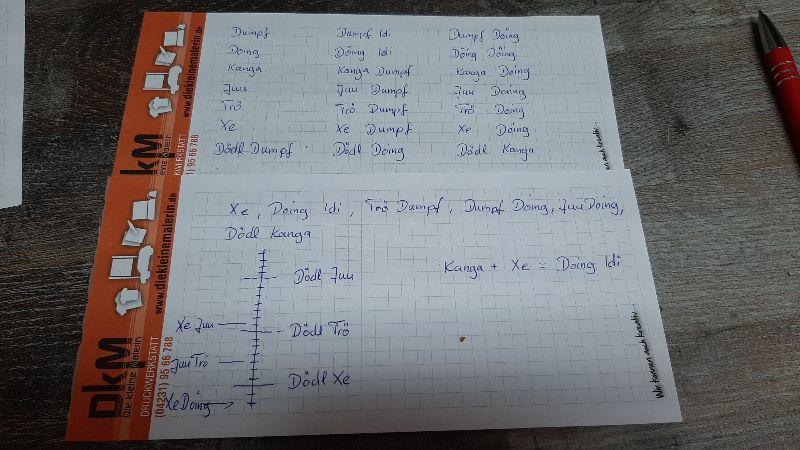 Dumpf Dumpf Idi Dumpf Doing
Doing Doing Idi Doing Doing
Kanga Kanga Dumpf Kanga Doing
Juu Juu Dumpf Juu Doing
Trö Trö Dumpf Trö Doing
Xe Xe Dumpf Xe Doing
Dödl Dumpf Dödl Doing Dödl Kanga
www.diekleinemalerin.de
kM
eine Malerin
KWERKSTATT
1) 95 66 788
Xe, Doing Idi, Trö Dumpf, Dumpf Doing, Juu Doing,
Dödl Kanga
Dödl Juu
Kanga + Xe = Doing Idi
Xe Juu
Dödl Trö
Juu Trö
Dödl Xe
Xe Doing
www.diekleinemalerin.de
DkM
Die kleine Malerin
DRUCKWERKSTATT
(04231) 95 66 788
Wir können auch kreativ...